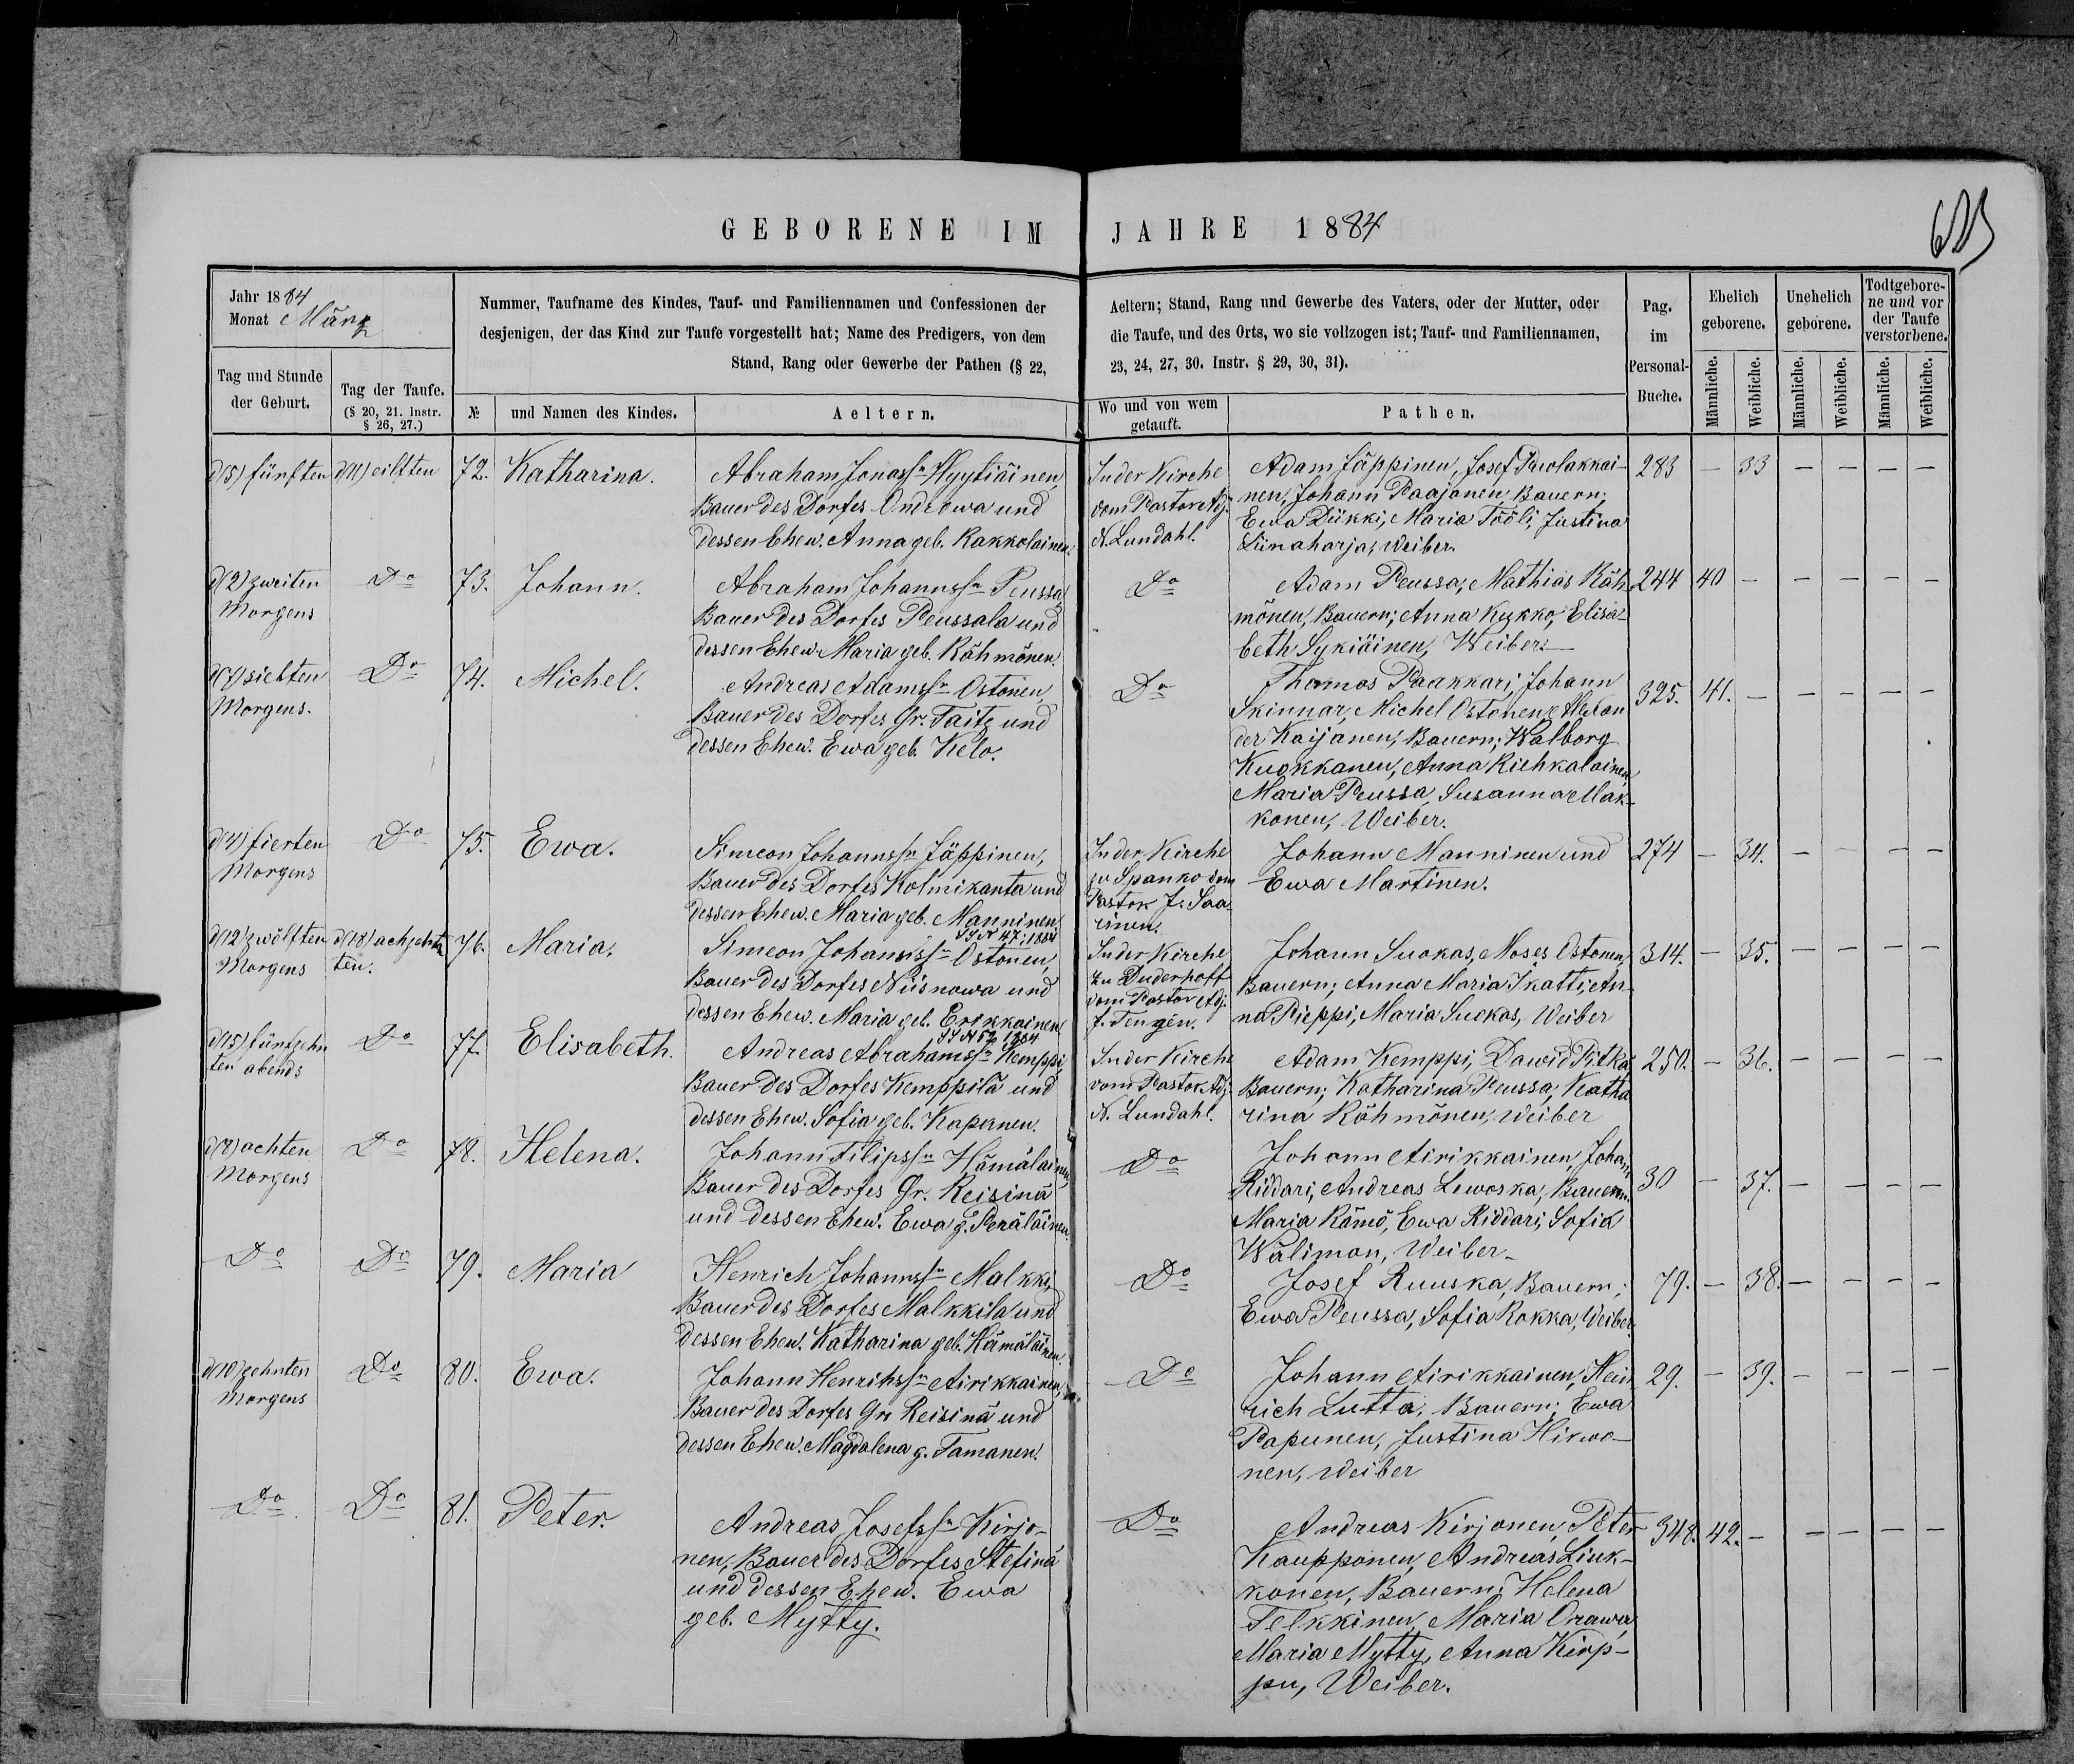 GEBORENE IM JAHRE 1884
Jahr 1884
Monat März
Nummer, Taufname des Kindes, Tauf- und Familiennamen und Confessionen der
desjenigen, der das Kind zur Taufe vorgestellt hat; Name des Predigers, von dem
Stand, Rang oder Gewerbe der Pathen (§ 22,
Aeltern; Stand, Rang und Gewerbe des Vaters, oder der Mutter, oder
die Taufe, und des Orts, wo sie vollzogen ist; Tauf- und Familiennamen,
23, 24, 27, 30. Instr. § 29, 30, 31).
Pag.
im
Personal-
Buche.
Ehelich
geborene.
Unehelich
geborene.
Todtgebore-
ne und vor
der Taufe
verstorbene.
Tag und Stunde
der Geburt.
Tag der Taufe.
(§ 20, 21. Instr.
§ 26, 27.)
№
und Namen des Kindes.
Aeltern.
Wo und von wem
getauft.
Pathen.
Männliche.
Weibliche.
Männliche.
Weibliche.
Männliche.
Weibliche.
d(5) fünften
d(11) eilften
72.
Katharina.
Abraham Jonass Hyytiäinen,
Bauer des Dorfes Ondrowa und
dessen Ehew. Anna geb. Kakkolainen.
In der Kirche
vom Pastor Adj.
N. Lundahl.
Adam Jäppinen, Josef Pawlakkai-
nen, Johann Paajanen, Bauern;
Ewa Dükki, Maria Tööli, Justina
Liinaharja, Weiber.
283 — 33 — — — —
d(2) zweiten
Morgens
Do
73.
Johann.
Abraham Johannss Peussa,
Bauer des Dorfes Peussala und
dessen Ehew. Maria geb. Röhmönen.
Do
Adam Peussa, Mathias Röh-
mönen, Bauern; Anna Kukko, Elisa-
beth Sykiäinen, Weiber.
244 40 — — — — —
d(7) siebten
Morgens.
Do
74.
Michel.
Andreas Adamss Ostonen,
Bauer des Dorfes Gr. Taitz und
dessen Ehew. Ewa geb. Kelo.
Do
Thomas Paakkari, Johann
Skinnar, Michel Ostonen, Alexan
der Kaijanen, Bauern; Walborg
Kuokkanen, Anna Riehkalainen,
Maria Peussa, Susanna Mak-
konen, Weiber.
325. 41. — — — — —
d(4) fierten
Morgens
Do
75.
Ewa.
Simeon Johannss Jäppinen,
Bauer des Dorfes Kolmikanta und
dessen Ehew. Maria geb. Manninen.
In der Kirche
zu Spanko vom
Pastor J. Saa-
rinen.
Johann Manninen und
Ewa Martinen.
274 — 34. — — — —
d(12) zwölften
Morgens
d(18) achzehn
ten.
76.
Maria.
N 47; 1884
Simeon Johannss Ostonen,
Bauer des Dorfes Niisnowa und
dessen Ehew. Maria geb. Erikkainen
In der Kirche
zu Duderhoff
vom Pastor Adj.
J. Tengén.
Johann Suokas, Moses Ostonen,
Bauern; Anna Maria Ikatti, An-
na Pieppi, Maria Suokas, Weiber
314. — 35. — — — —
d(15) fünfzehn
ten abends
Do
77.
Elisabeth.
1884
Andreas Abrahamss Kemppi,
Bauer des Dorfes Kemppilä und
dessen Ehew. Sofia geb. Kapanen.
In der Kirche
vom Pastor Adj.
N. Lundahl.
Adam Kemppi, Dawid Pitkä,
Bauern; Katharina Peussa, Katha
rina Röhmönen, Weiber
250. — 36. — — — —
d(8) achten
Morgens
Do
78.
Helena.
Johann Filipss Hämäläinen,
Bauer des Dorfes Gr. Reisinä
und dessen Ehew. Ewa g. Peräläinen.
Do
Johann Airikkainen, Johann
Riddari, Andreas Lewoska, Bauern;
Maria Rämö, Ewa Riddari, Sofia
Wäliman, Weiber.
30 — 37. — — — —
Do
Do
79.
Maria
Henrich Johannss Malkki,
Bauer des Dorfes Malkkila und
dessen Ehew. Katharina geb. Hämäläinen.
Do
Josef Ruuska, Bauern;
Ewa Peussa, Sofia Rokka, Weiber.
79. — 38. — — — —
d(10) zehnten
Morgens
Do
80.
Ewa.
Johann Henrihss Airikkainen,
Bauer des Dorfes Gr. Reisinä und
dessen Ehew. Magdalena g. Tamanen.
Do
Johann Airikkainen, Hein
rich Lutta, Bauern; Ewa
Papunen, Justina Hirwo-
nen, Weiber
29. — 39. — — — —
Do
Do
81.
Peter.
Andreas Josefss Kirjo-
nen, Bauer des Dorfes Stefinä
und dessen Ehew. Ewa
geb. Mytty.
Do
Andreas Kirjonen, Peter
Kaupponen, Andreas Liuk-
konen, Bauern; Helena
Telkkinen, Maria Orawa,
Maria Mytty, Anna Kirp-
pu, Weiber.
348. 42. — — — — —